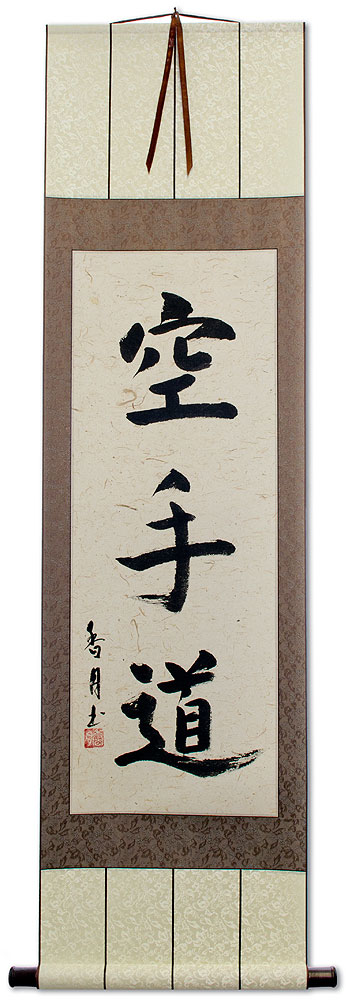 空手道
香月书